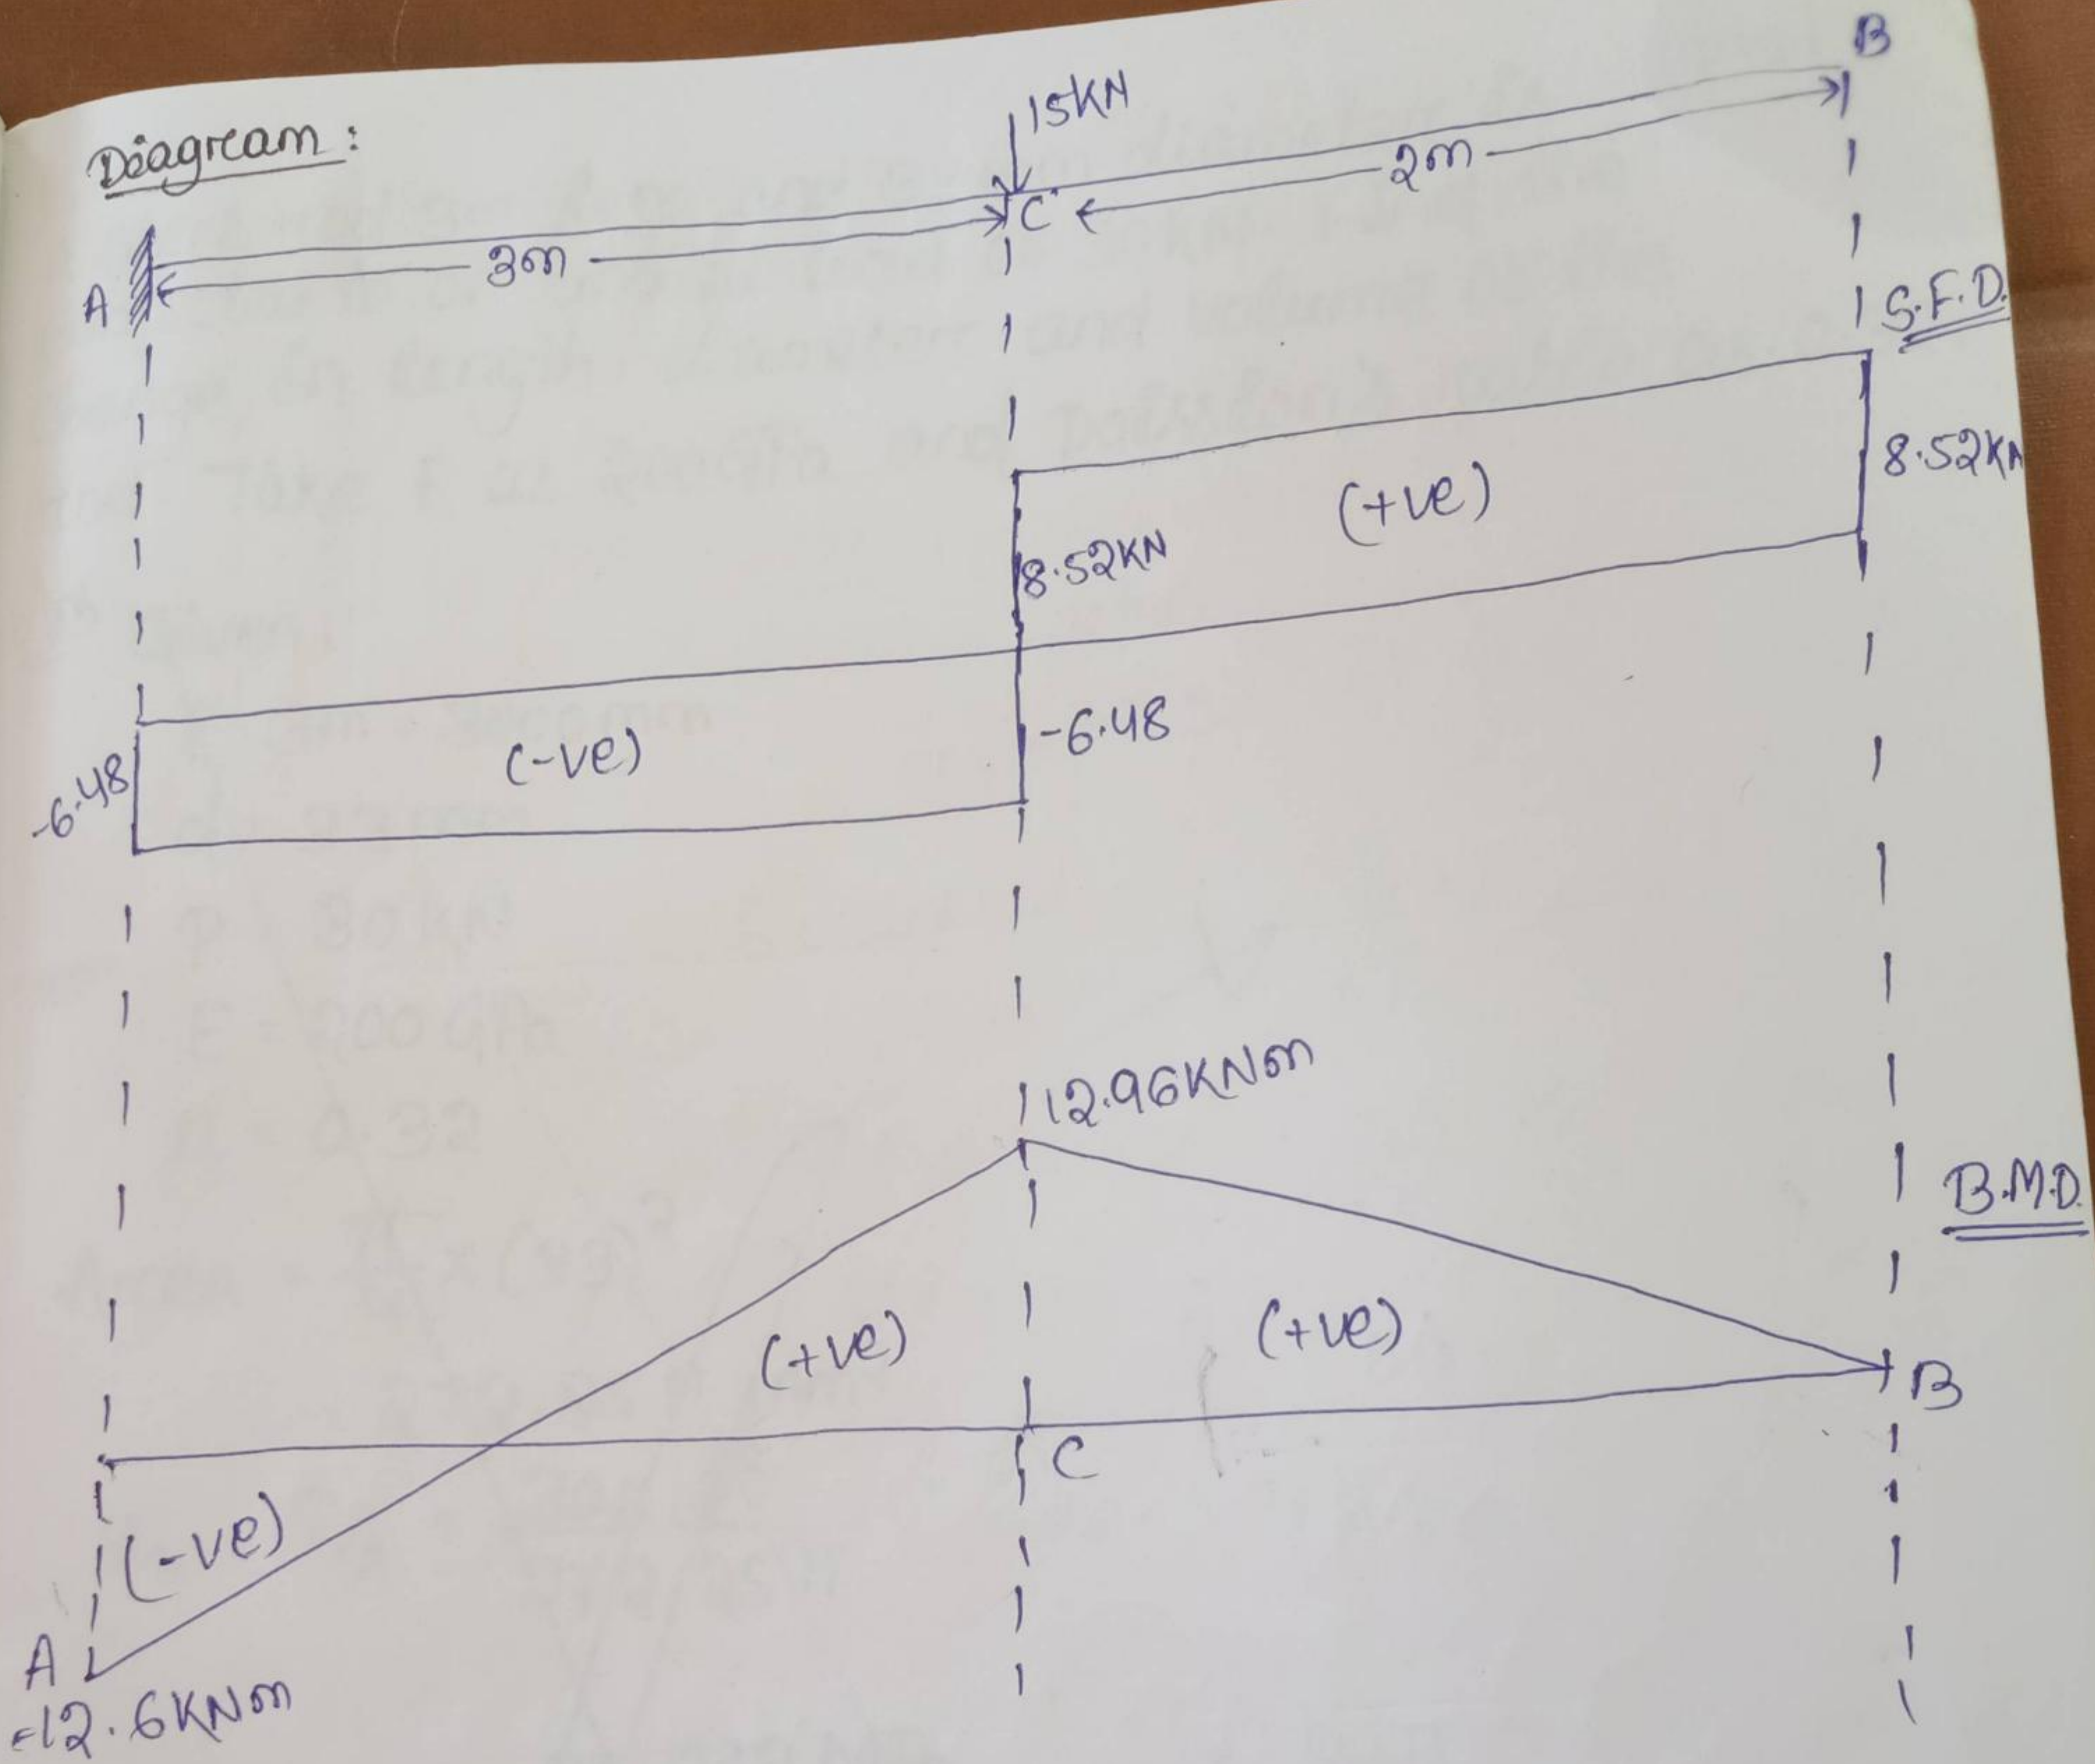 Diagream :
15KN
B
A
3m
C
2m
S.F.D.
8.52KN
(+ve)
8.52KN
-6.48
(-ve)
-6.48
12.96KNm
B.M.D.
(+ve)
(+ve)
B
C
(-ve)
A
-12.6KNm